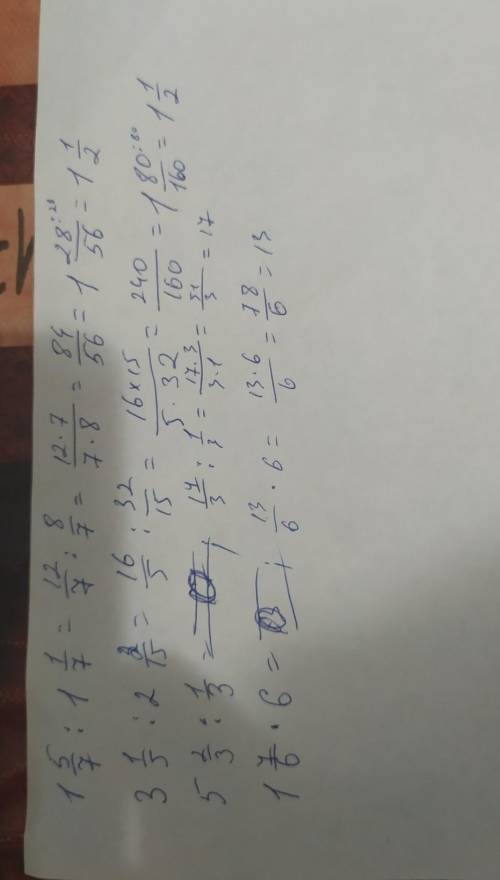 1 5/7 : 1 1/7 = 12/7 : 8/7 = 12·7/7·8 = 84/56 = 1 28:28/56 = 1 1/2
3 1/5 : 2 2/15 = 16/5 : 32/15 = 16×15/5·32 = 240/160 = 1 80:80/160 = 1 1/2
5 2/3 : 1/3 = ; 17/3 : 1/3 = 17·3/3·1 = 51/3 = 17
1 7/6 · 6 = ; 13/6 · 6 = 13·6/6 = 78/6 = 13